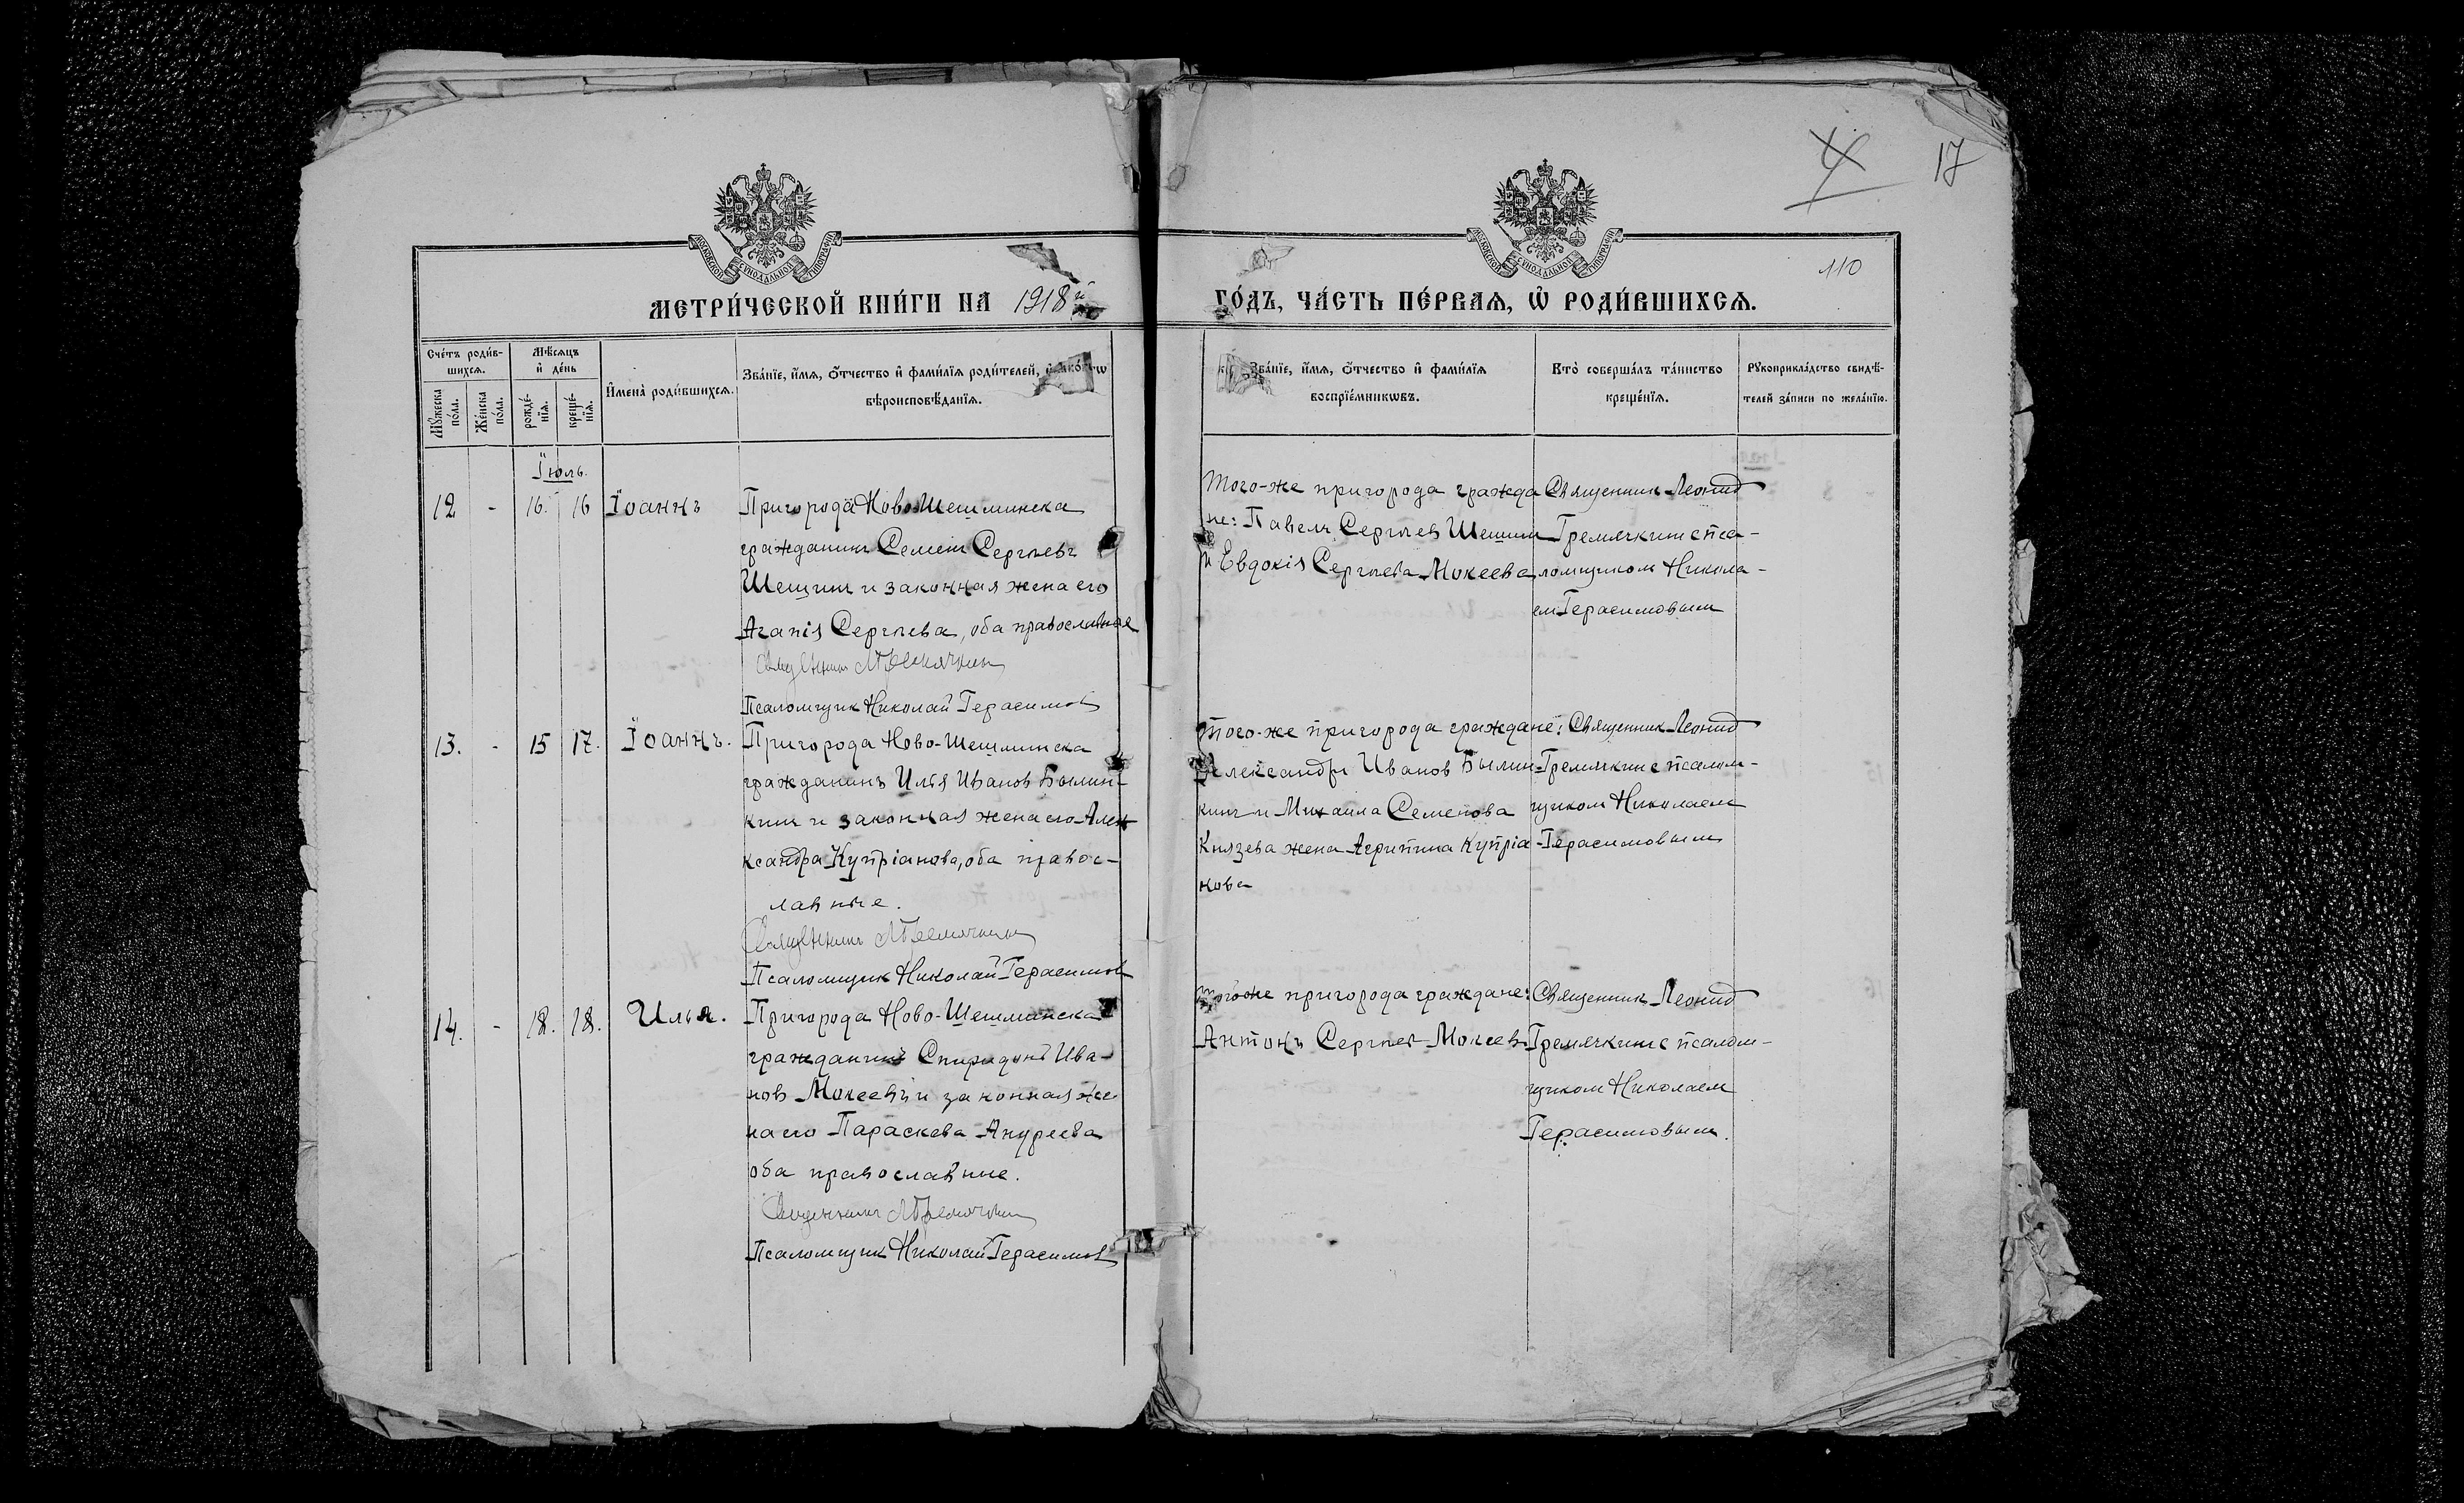 17
110
МОСКОВСКОЙ СУНОДАЛЬНОЙ ТИПОГРАФІИ
МОСКОВСКОЙ СУНОДАЛЬНОЙ ТИПОГРАФІИ
МЕТРИ́ЧЕСКОЙ КНИ́ГИ НА 1918 й
ГО́ДЪ, ЧА́СТЬ ПЕ́РВАѦ, Ѡ҆ РОДИ́ВШИХСѦ.
Сче́тъ роди́в-
шихсѧ.
Мꙋ́жеска по́ла.
Же́нска по́ла.
Мѣ́сѧцъ
и҆ де́нь
рожде́-
нїѧ.
креще́-
нїѧ.
И҆мена̀ роди́вшихсѧ.
Зва́нїе, и҆́мѧ, ѻ҆́тчество и҆ фами́лїѧ роди́телей, и҆
вѣроисповѣ́данїѧ.
Зва́нїе, и҆́мѧ, ѻ҆́тчество и҆ фами́лїѧ
воспрїе́мникѡвъ.
Кто̀ соверша́лъ та́инство
креще́нїѧ.
Рꙋкоприкла́дство свидѣ́-
телей за́писи по жела́нїю.
Іюль.
12 - 16. 16 Іоаннъ
Пригорода Ново-Шешминска
гражданинъ Семенъ Сергѣевъ
Шешин и законная жена его
Агапія Сергѣева, оба православные
Священникъ Л Гремячкин
Псаломщик Николай Герасимов
Того-же пригорода гражда
не: Павелъ Сергѣев Шешин
и Евдокія Сергѣева Мокеева
Священникъ Леонид
Гремячкин с пса-
ломщиком Никола-
ем Герасимовым
13. - 15 17. Іоаннъ.
Пригорода Ново-Шешминска
гражданинъ Илья Иванов Былин-
кин и законная жена его Алек
ксандра Купріанова, оба правос-
лавные.
Священникъ Л Гремячкин
Псаломщик Николай Герасимов
того-же пригорода граждане:
Александръ Иванов Былин-
кин и Михаила Семенова
Князева жена Агрипина Купріа-
нова
Священник Леонид
Гремячкин с псалом-
щиком Николаем
Герасимовым
14. - 18. 18. Илья.
Пригорода Ново-Шешминска
гражданинъ Спиридонъ Ива-
нов Мокеевъ и законная же
на его Параскева Андреева
оба православные.
Священникъ Л Гремячкин
Псаломщик Николай Герасимов
того же пригорода граждане:
Антонъ Сергѣев Мокеев
Священникъ Леонид
Гремячкин с псалом-
щиком Николаем
Герасимовым.